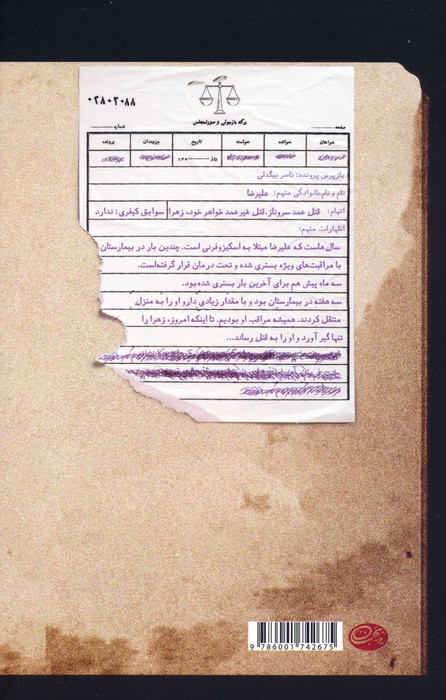 ۰۲۸۰۲۰۸۸
برگه بازجویی و صورتمجلس
صفحه
شماره
خواهان
خوانده
خواسته
تاریخ
جزوه‌دان
پرونده
روز
بازپرس پرونده: ناصر بیگدلی
نام و نام خانوادگی متهم: علیرضا
اتهام: قتل عمد سروناز، قتل غیرعمد خواهر خود، زهرا
سوابق کیفری: ندارد
اظهارات متهم:
سال‌هاست که علیرضا مبتلا به اسکیزوفرنی است. چندین بار در بیمارستان
با مراقبت‌های ویژه بستری شده و تحت درمان قرار گرفته‌است.
سه ماه پیش هم برای آخرین بار بستری شده بود.
سه هفته در بیمارستان بود و با مقدار زیادی دارو او را به منزل
منتقل کردند. همیشه مراقب او بودیم. تا اینکه امروز، زهرا را
تنها گیر آورد و او را به قتل رساند...
9 786001 742675